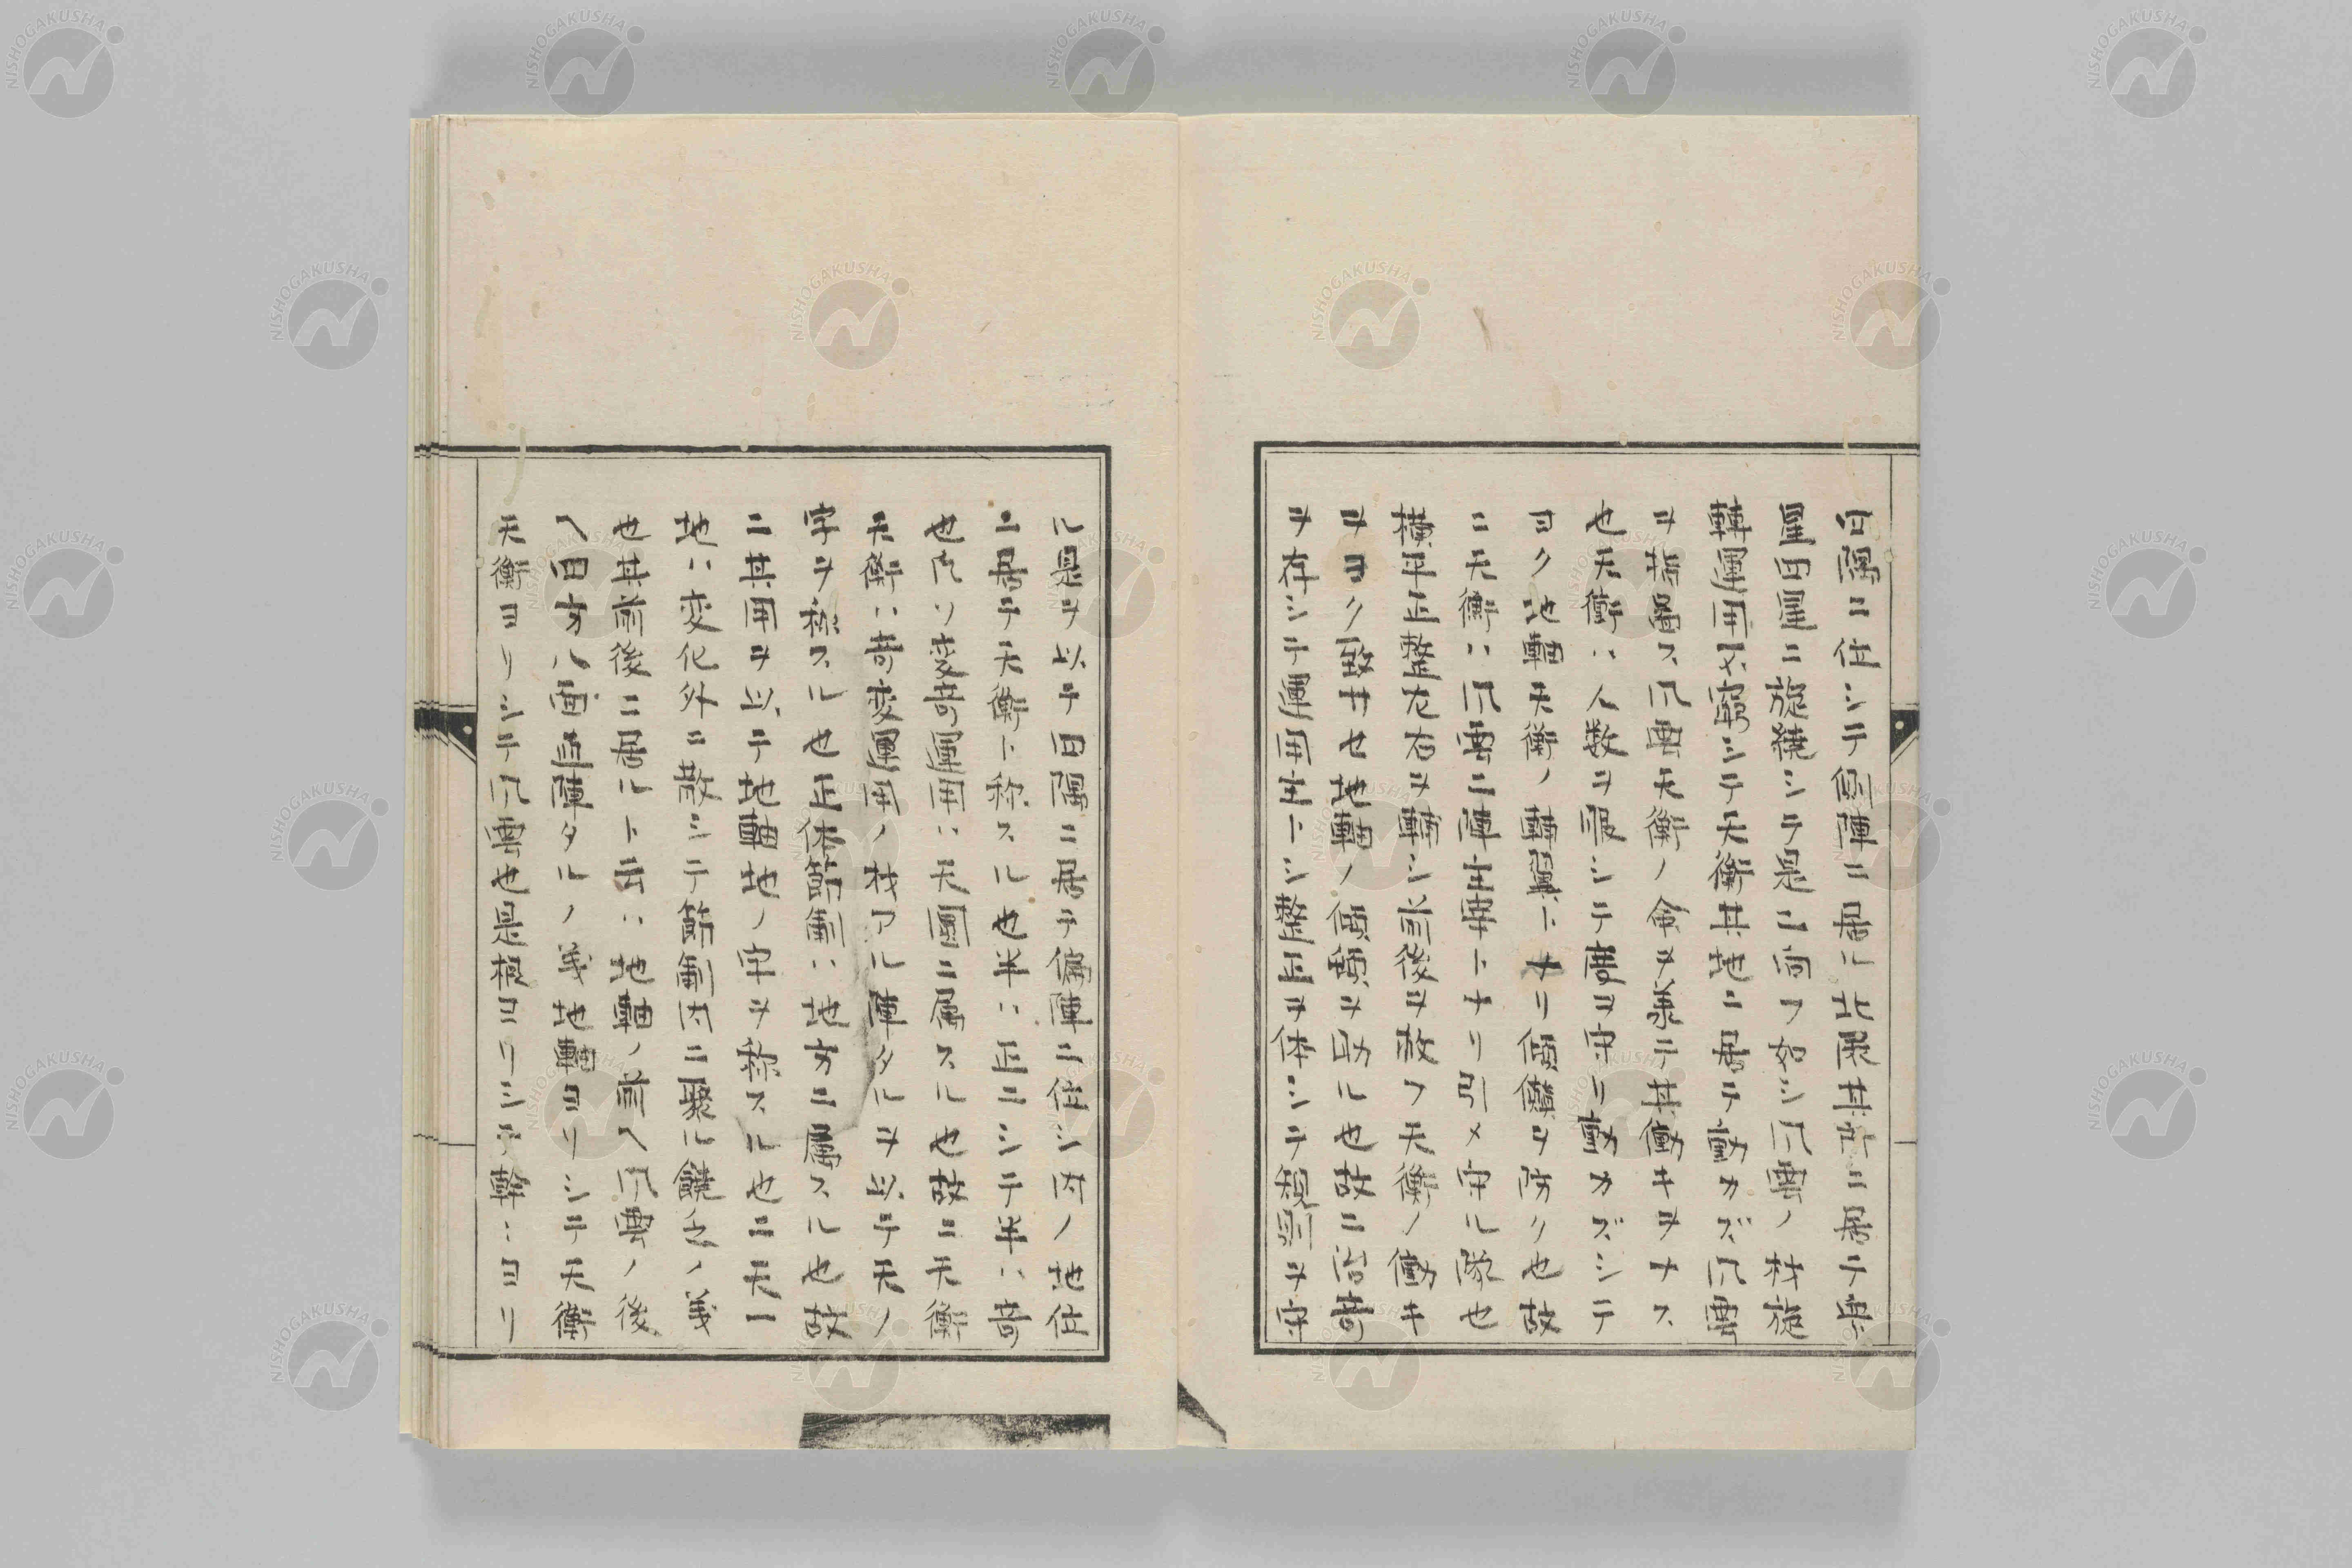 四隅ニ住シテ側陣ニ居ル此隊其所ニ居テ衆
星四星ニ旋繞シテ是ニ向フ如シ爪雲ノ材旋
轉運用不窮シテ天衡其地ニ居テ動カズ爪雲
ヲ指揮ス爪雲天衡ノ命ヲ義テ其働キヲナス
也天衡ハ人数ヲ服シテ虞ヲ守リ動カズシテ
ヨク地軸天衡ノ轉翼トナリ傾攲ヲ防ク也故
ニ天衡ハ爪雲ニ陣主宰トナリ引メ守ル隊也
横平正整左右ヲ轉シ前後ヲ救フ天衡ノ働キ
ヲヨク致サセ地軸ノ傾頽ヲ助ル也故ニ治奇
ヲ存シテ運用主トシ整正ヲ体シテ規則ヲ守
ル是ヲ以テ四隅ニ居テ偏陣ニ住シ内ノ地住
ニ居テ天衡ト称スル也半ハ正ニシテ半ハ奇
也凡ソ変奇運用ハ天圓ニ属スル也故ニ天衡
天衡ハ奇変運用ノ材アル陣タルヲ以テ天ノ
字ヲ称スル也正体節制ハ地方ニ属スル也故
ニ其用ヲ以テ地軸地ノ字ヲ称スル也ニ天一
地ハ変化外ニ散シテ節制内ニ聚ル饒之ノ義
也其前後ニ居ルト云ハ地軸ノ前ヘ爪雲ノ後
ヘ四方八面直陣タルノ義地軸ヨリシテ天衡
天衡ヨリシテ爪雲也是根ヨリシテ幹ハヨリ